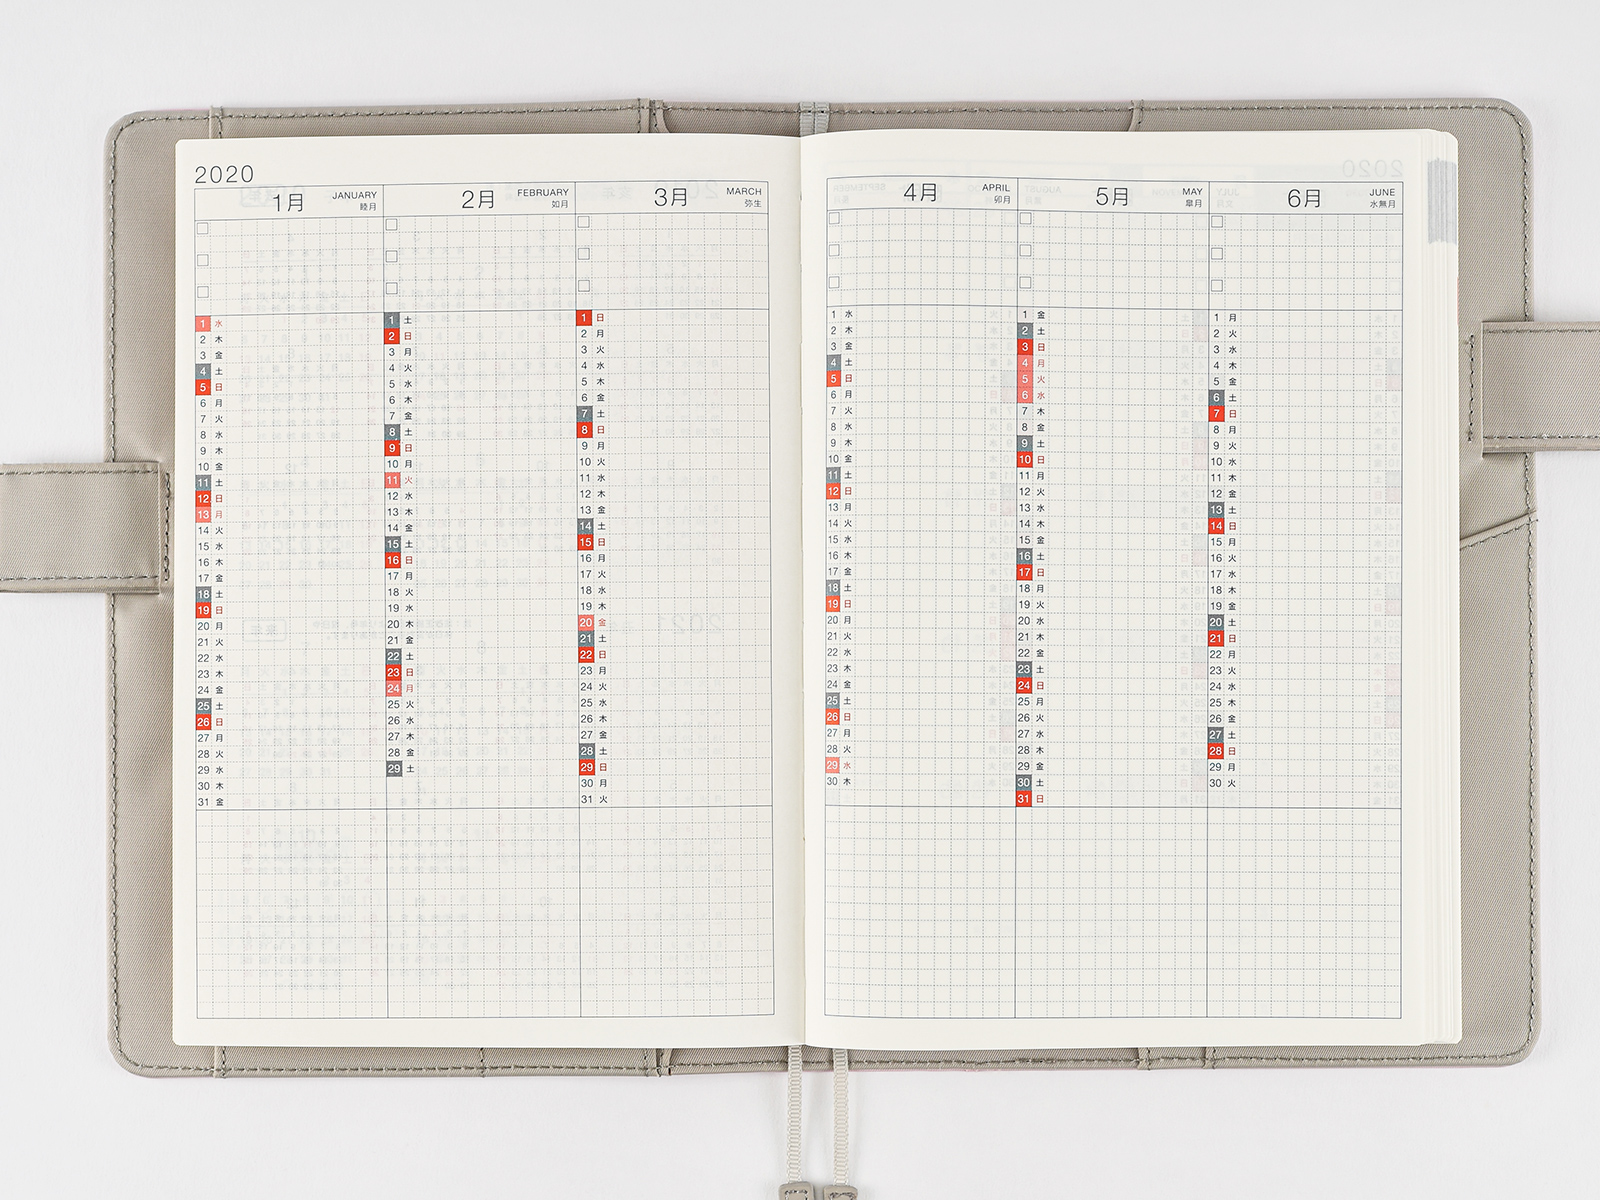 2020
1月 JANUARY 睦月
2月 FEBRUARY 如月
3月 MARCH 弥生
1 水
2 木
3 金
4 土
5 日
6 月
7 火
8 水
9 木
10 金
11 土
12 日
13 月
14 火
15 水
16 木
17 金
18 土
19 日
20 月
21 火
22 水
23 木
24 金
25 土
26 日
27 月
28 火
29 水
30 木
31 金
1 土
2 日
3 月
4 火
5 水
6 木
7 金
8 土
9 日
10 月
11 火
12 水
13 木
14 金
15 土
16 日
17 月
18 火
19 水
20 木
21 金
22 土
23 日
24 月
25 火
26 水
27 木
28 金
29 土
1 日
2 月
3 火
4 水
5 木
6 金
7 土
8 日
9 月
10 火
11 水
12 木
13 金
14 土
15 日
16 月
17 火
18 水
19 木
20 金
21 土
22 日
23 月
24 火
25 水
26 木
27 金
28 土
29 日
30 月
31 火
4月 APRIL 卯月
5月 MAY 皐月
6月 JUNE 水無月
1 水
2 木
3 金
4 土
5 日
6 月
7 火
8 水
9 木
10 金
11 土
12 日
13 月
14 火
15 水
16 木
17 金
18 土
19 日
20 月
21 火
22 水
23 木
24 金
25 土
26 日
27 月
28 火
29 水
30 木
1 金
2 土
3 日
4 月
5 火
6 水
7 木
8 金
9 土
10 日
11 月
12 火
13 水
14 木
15 金
16 土
17 日
18 月
19 火
20 水
21 木
22 金
23 土
24 日
25 月
26 火
27 水
28 木
29 金
30 土
31 日
1 月
2 火
3 水
4 木
5 金
6 土
7 日
8 月
9 火
10 水
11 木
12 金
13 土
14 日
15 月
16 火
17 水
18 木
19 金
20 土
21 日
22 月
23 火
24 水
25 木
26 金
27 土
28 日
29 月
30 火